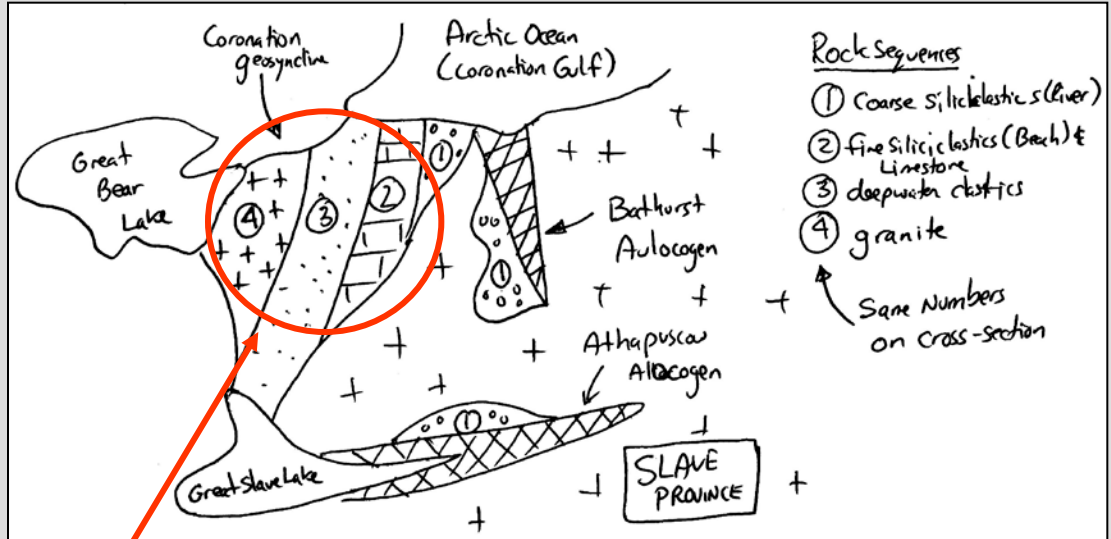 Coronation
geosyncline
Arctic Ocean
(Coronation Gulf)
Great
Bear
Lake
4
3
2
1
1
Bathurst
Aulocogen
Athapuscow
Alocogen
1
Great Slave Lake
SLAVE
PROVINCE
Rock Sequences
1 Coarse Siliciclastics (River)
2 fine Siliciclastics (Beach) &
Limestone
3 deepwater clastics
4 granite
Same Numbers
on cross-section